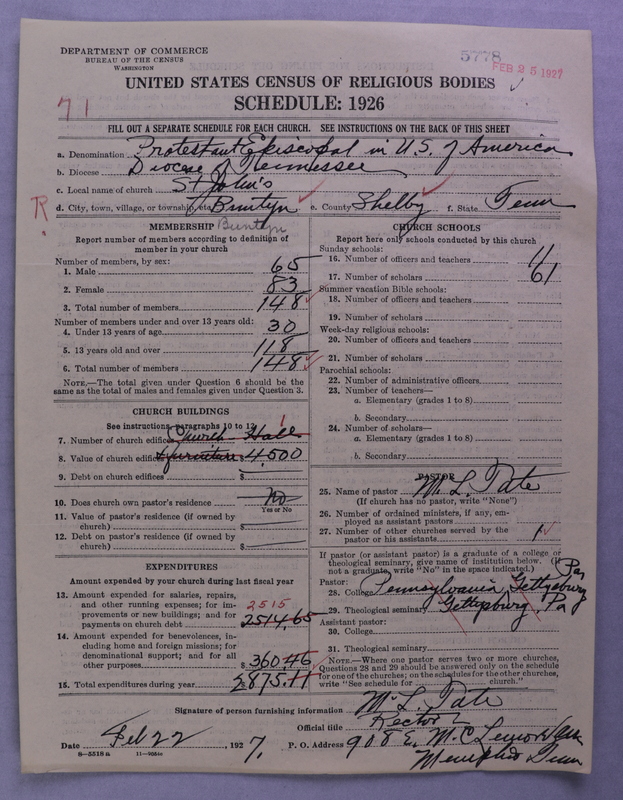 DEPARTMENT OF COMMERCE
BUREAU OF THE CENSUS
WASHINGTON
5778
FEB 25 1927
UNITED STATES CENSUS OF RELIGIOUS BODIES
SCHEDULE: 1926
71
FILL OUT A SEPARATE SCHEDULE FOR EACH CHURCH. SEE INSTRUCTIONS ON THE BACK OF THIS SHEET
a. Denomination Protestant Episcopal in U.S. of America
b. Diocese Diocese of Tennessee
c. Local name of church St John's
R.
d. City, town, village, or township, etc. Buntyn e. County Shelby f. State Tenn
MEMBERSHIP Buntyn
Report number of members according to definition of
member in your church
Number of members, by sex:
1. Male 65
2. Female 83
3. Total number of members 148
Number of members under and over 13 years old:
4. Under 13 years of age 30
5. 13 years old and over 118
6. Total number of members 148
NOTE.—The total given under Question 6 should be the
same as the total of males and females given under Question 3.
CHURCH BUILDINGS
See instructions, paragraphs 10 to 12
7. Number of church edifices Church - Hall 1
8. Value of church edifices & furniture $4,500
9. Debt on church edifices $
10. Does church own pastor's residence No
Yes or No
11. Value of pastor's residence (if owned by
church) $
12. Debt on pastor's residence (if owned by
church) $
EXPENDITURES
Amount expended by your church during last fiscal year
13. Amount expended for salaries, repairs,
and other running expenses; for im-
provements or new buildings; and for
payments on church debt 2515 2514.65
14. Amount expended for benevolences, in-
cluding home and foreign missions; for
denominational support; and for all
other purposes $360.46
15. Total expenditures during year 2875.11
CHURCH SCHOOLS
Report here only schools conducted by this church
Sunday schools:
16. Number of officers and teachers 11
17. Number of scholars 61
Summer vacation Bible schools:
18. Number of officers and teachers
19. Number of scholars
Week-day religious schools:
20. Number of officers and teachers
21. Number of scholars
Parochial schools:
22. Number of administrative officers
23. Number of teachers—
a. Elementary (grades 1 to 8)
b. Secondary
24. Number of scholars—
a. Elementary (grades 1 to 8)
b. Secondary
PASTOR
25. Name of pastor M. L. Tate
(If church has no pastor, write "None")
26. Number of ordained ministers, if any, em-
ployed as assistant pastors
27. Number of other churches served by the
pastor or his assistants 1
If pastor (or assistant pastor) is a graduate of a college or
theological seminary, give name of institution below. (If
not a graduate, write "No" in the space indicated.)
Pastor:
28. College Pennsylvania, Gettysburg (Pa)
29. Theological seminary Gettysburg, Pa
Assistant pastor:
30. College
31. Theological seminary
NOTE.—Where one pastor serves two or more churches,
Questions 28 and 29 should be answered only on the schedule
for one of the churches; on the schedules for the other churches,
write "See schedule for church."
Signature of person furnishing information M. L. Tate
Official title Rector
Date Feb 22, 1927. P. O. Address 908 E. McLemore Ave
Memphis Tenn
8—5518 a